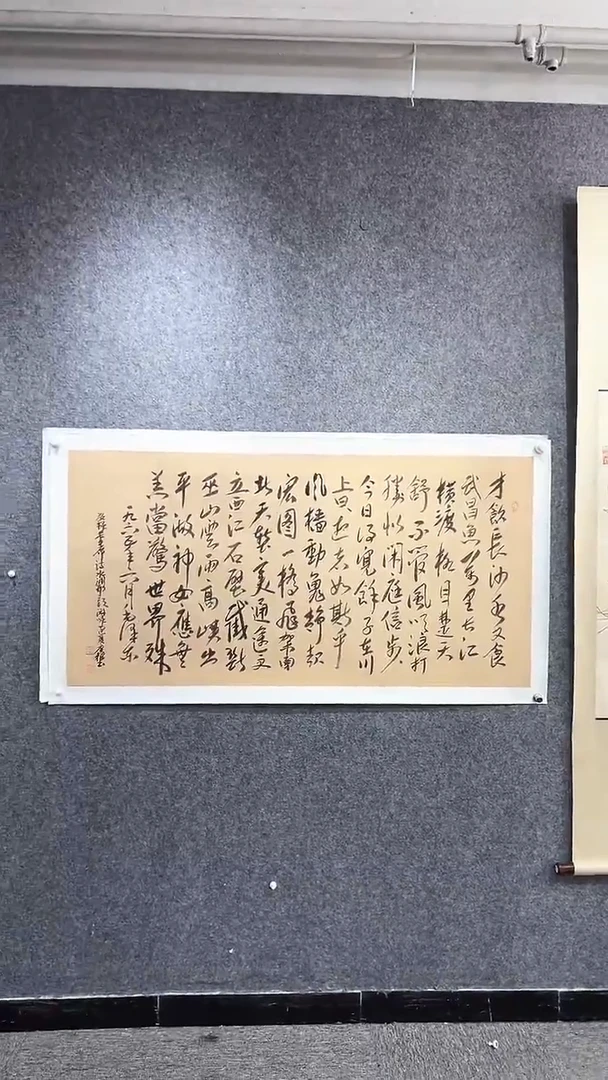 才飲長沙水又食
武昌魚萬里長江
橫渡極目楚天
舒不管風吹浪打
勝似閑庭信步
今日得寬餘子在川
上曰逝者如斯
風檣動龜靜起
宏图一橋飛架南
北天塹變通途更
立西江石壁截斷
巫山雲雨高峽出
平湖神女應無
恙當驚世界殊
一九六年月毛澤東